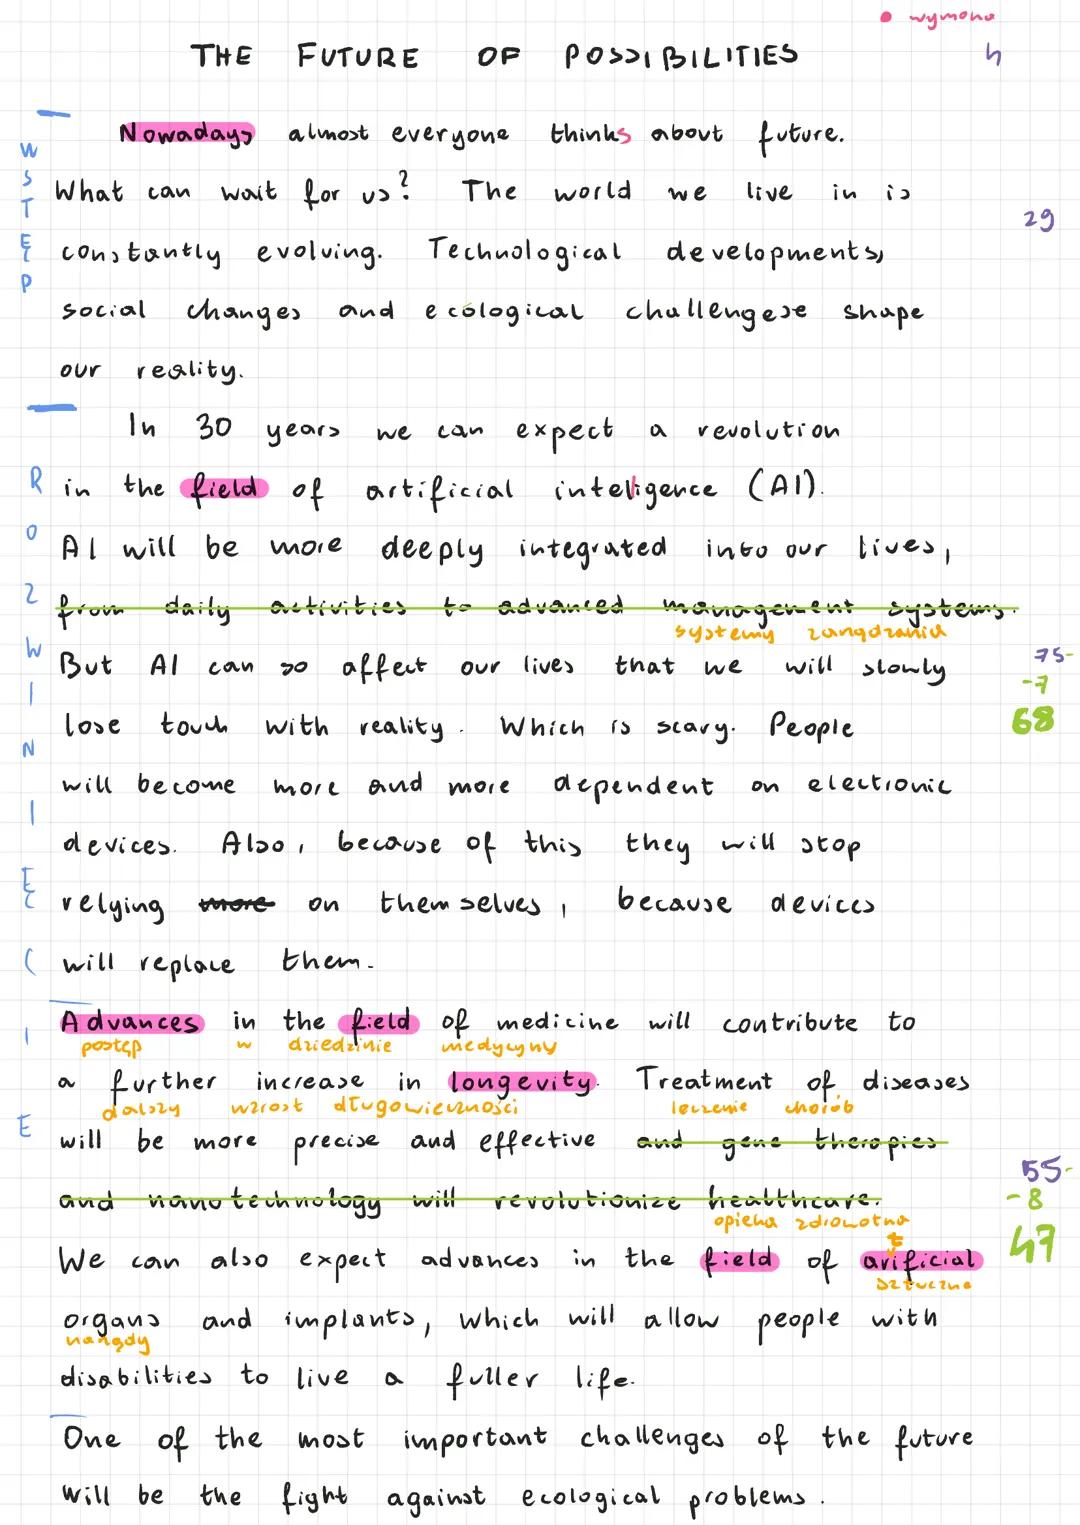 • wymowa
THE FUTURE OF POSSIBILITIES 4
WSTĘP
Nowadays almost everyone thinks about future.
What can wait for us? The world we live in is
29
constantly evolving. Technological developments,
social changes and ecological challengese shape
our reality.
ROZWINIĘCIE
In 30 years we can expect a revolution
in the field of artificial inteligence (AI).
AI will be more deeply integrated into our lives,
from daily activities to advanced management systems.
systemy zarządzania
But AI can so affect our lives that we will slowly
75-
-7
68
lose touch with reality. Which is scary. People
will become more and more dependent on electronic
devices. Also, because of this they will stop
relying more on themselves, because devices
will replace them.
Advances in the field of medicine will contribute to
postęp w dziedzinie medycyny
a further increase in longevity. Treatment of diseases
dalszy wzrost długowieczności leczenie chorób
will be more precise and effective and gene therapies
55-
-8
47
and nanotechnology will revolutionize healthcare.
opieka zdrowotna
t
We can also expect advances in the field of arificial
sztuczne
organs and implants, which will allow people with
narządy
disabilities to live a fuller life.
One of the most important challenges of the future
will be the fight against ecological problems.